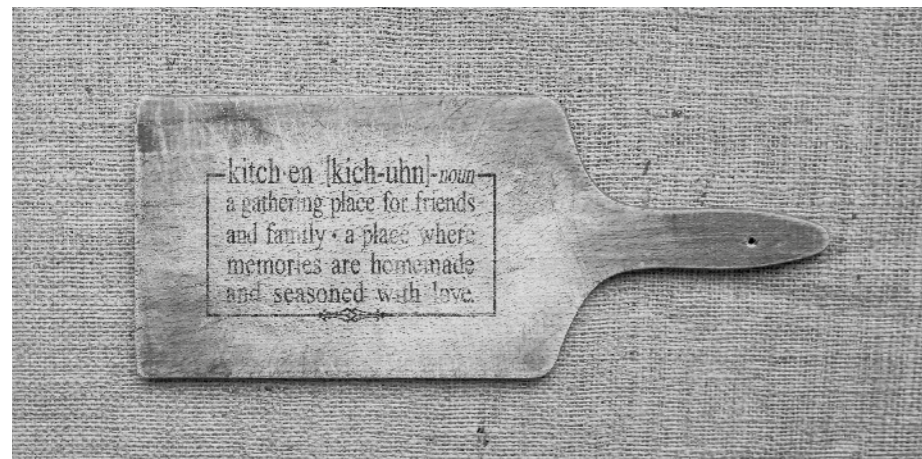 kitch·en [kich-uhn]-noun
a gathering place for friends
and family • a place where
memories are homemade
and seasoned with love.